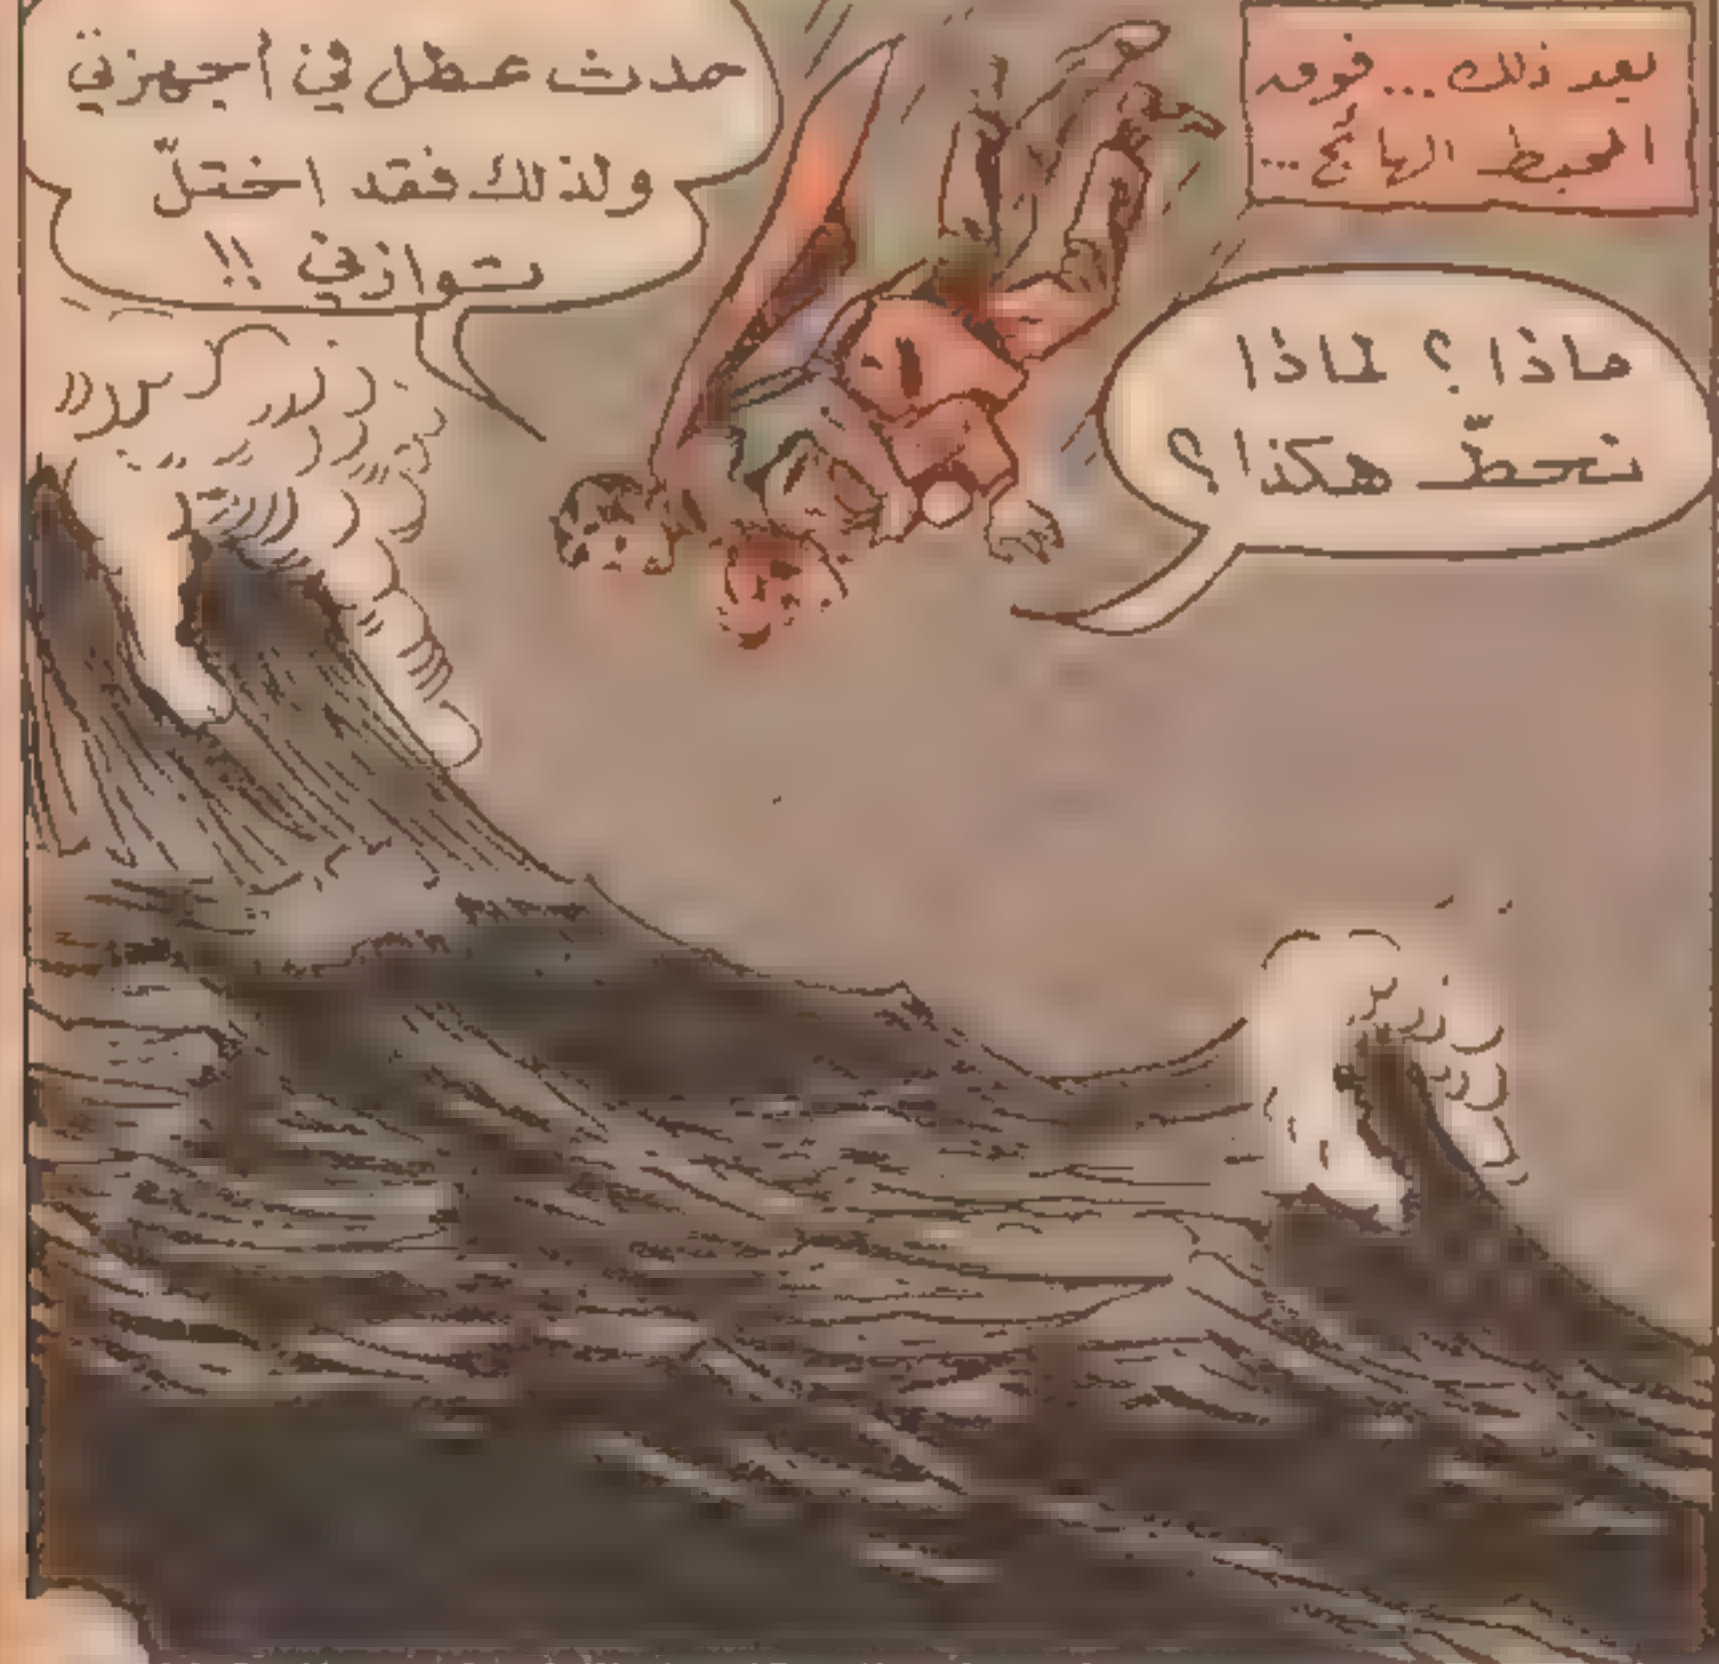 بعد ذلك... فوق
المحيط الهائج...
ماذا؟ لماذا
نحطّ هكذا؟
حدث عطل في أجهزتي
ولذلك فقد اختلّ
توازني !!